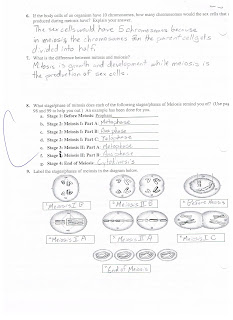 6. If the body cells of an organism have 10 chromosomes, how many chromosomes would the sex cells that are
produced during meiosis have? Explain your answer.
The sex cells would have 5 chromosomes because
in meiosis the chromosomes for the parent cell gets
divided into half.
7. What is the difference between meiosis and meiosis?
Mitosis is growth and development while meiosis is
the production of sex cells.
8. What stage/phase of mitosis does each of the following stages/phases of Meiosis remind you of? (Use pages
98 and 99 to help you out.) An example has been done for you.
a. Stage 1: Before Meiosis: Prophase
b. Stage 2: Meiosis I: Part A: Metaphase
c. Stage 2: Meiosis I: Part B: Anaphase
d. Stage 2: Meiosis I: Part C: Telophase
e. Stage 3: Meiosis II: Part A: Metaphase
f. Stage 3: Meiosis II: Part B: Anaphase
g. Stage 4: End of Meiosis: Cytokinesis
9. Label the stages/phases of meiosis in the diagram below.
*Meiosis I B
*Meiosis II B
*Before Meiosis
*Meiosis I A
*Meiosis II A
*Meiosis I C
*End of Meiosis